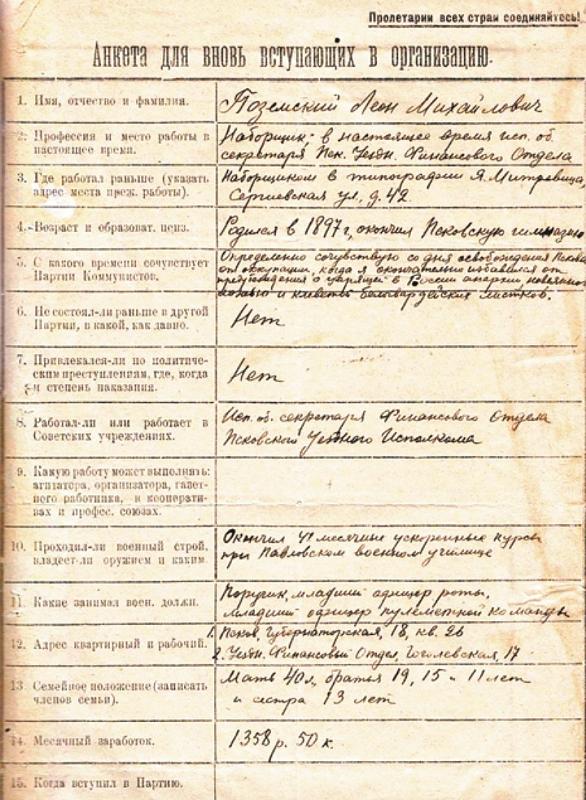 Пролетарии всех стран соединяйтесь!
Анкета для вновь вступающих в организацию.
1. Имя, отчество и фамилия.
Поземский Леон Михайлович
2. Профессия и место работы в
настоящее время.
Наборщик; в настоящее время исп. об.
секретаря Пск. Уездн. Финансового Отдела
3. Где работал раньше (указать
адрес места преж. работы).
Наборщиком в типографии Я. Митревица,
Сергиевская ул, д. 42.
4. Возраст и образоват. ценз.
Родился в 1897 г, окончил Псковскую гимназию
5. С какого времени сочувствует
Партии Коммунистов.
Определенно сочувствую со дня освобождения Пскова
от оккупации, когда я окончательно избавился от
предубеждения о царящей в России анархии навеянного
и клеветы белогвардейских листков.
6. Не состоял-ли раньше в другой
Партии, в какой, как давно.
Нет
7. Привлекался-ли по политиче-
ским преступлениям, где, когда
и степень наказания.
Нет
8. Работал-ли или работает в
Советских учреждениях.
Исп. об. секретаря Финансового отдела
Псковского Уездного Исполкома
9. Какую работу может выполнять:
агитатора, организатора, газет-
ного работника, в кооперати-
вах и профес. союзах.
10. Проходил-ли военный строй,
владеет-ли оружием и каким.
Окончил 4х месячные ускоренные курсы
при Павловском военном училище
11. Какие занимал воен. должн.
Поручик, младший офицер роты,
младший офицер пулеметной команды
12. Адрес квартирный и рабочий.
1. Псков, Губернаторская, 18, кв. 26
2. Уездн. Финансовый Отдел, Гоголевская, 17
13. Семейное положение (записать
членов семьи).
Мать 40 л, братья 19, 15 и 11 лет
и сестра 13 лет
14. Месячный заработок.
1358 р. 50 к.
15. Когда вступил в Партию.